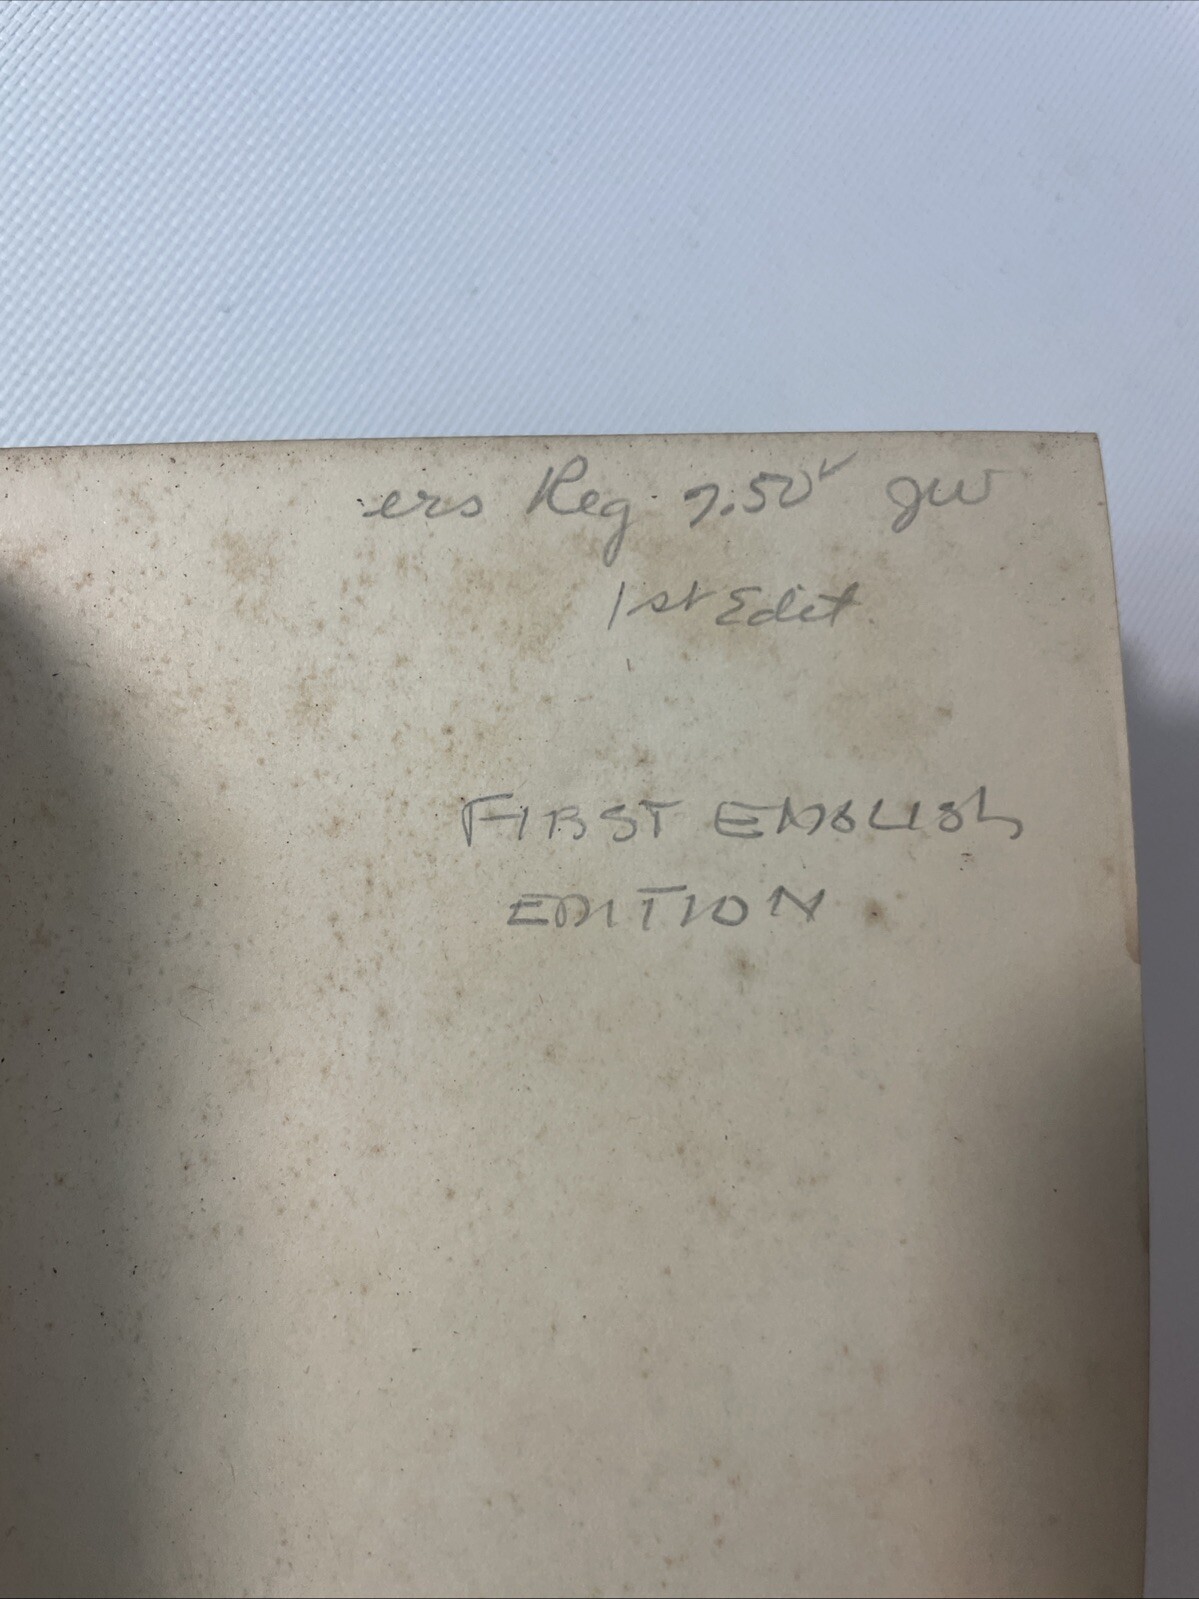 ers Reg. 7.50 gw
1st Edit.
FIRST ENGLISH
EDITION